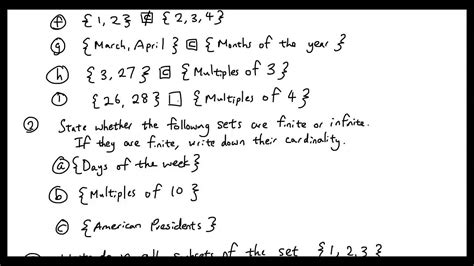 (f) {1, 2} ⊄ {2, 3, 4}
(g) {March, April} ⊂ {Months of the year}
(h) {3, 27} ⊂ {Multiples of 3}
(i) {26, 28} □ {Multiples of 4}
② State whether the following sets are finite or infinite.
If they are finite, write down their cardinality.
(a) {Days of the week}
(b) {Multiples of 10}
(c) {American Presidents}
all subsets of the set {1, 2, 3}